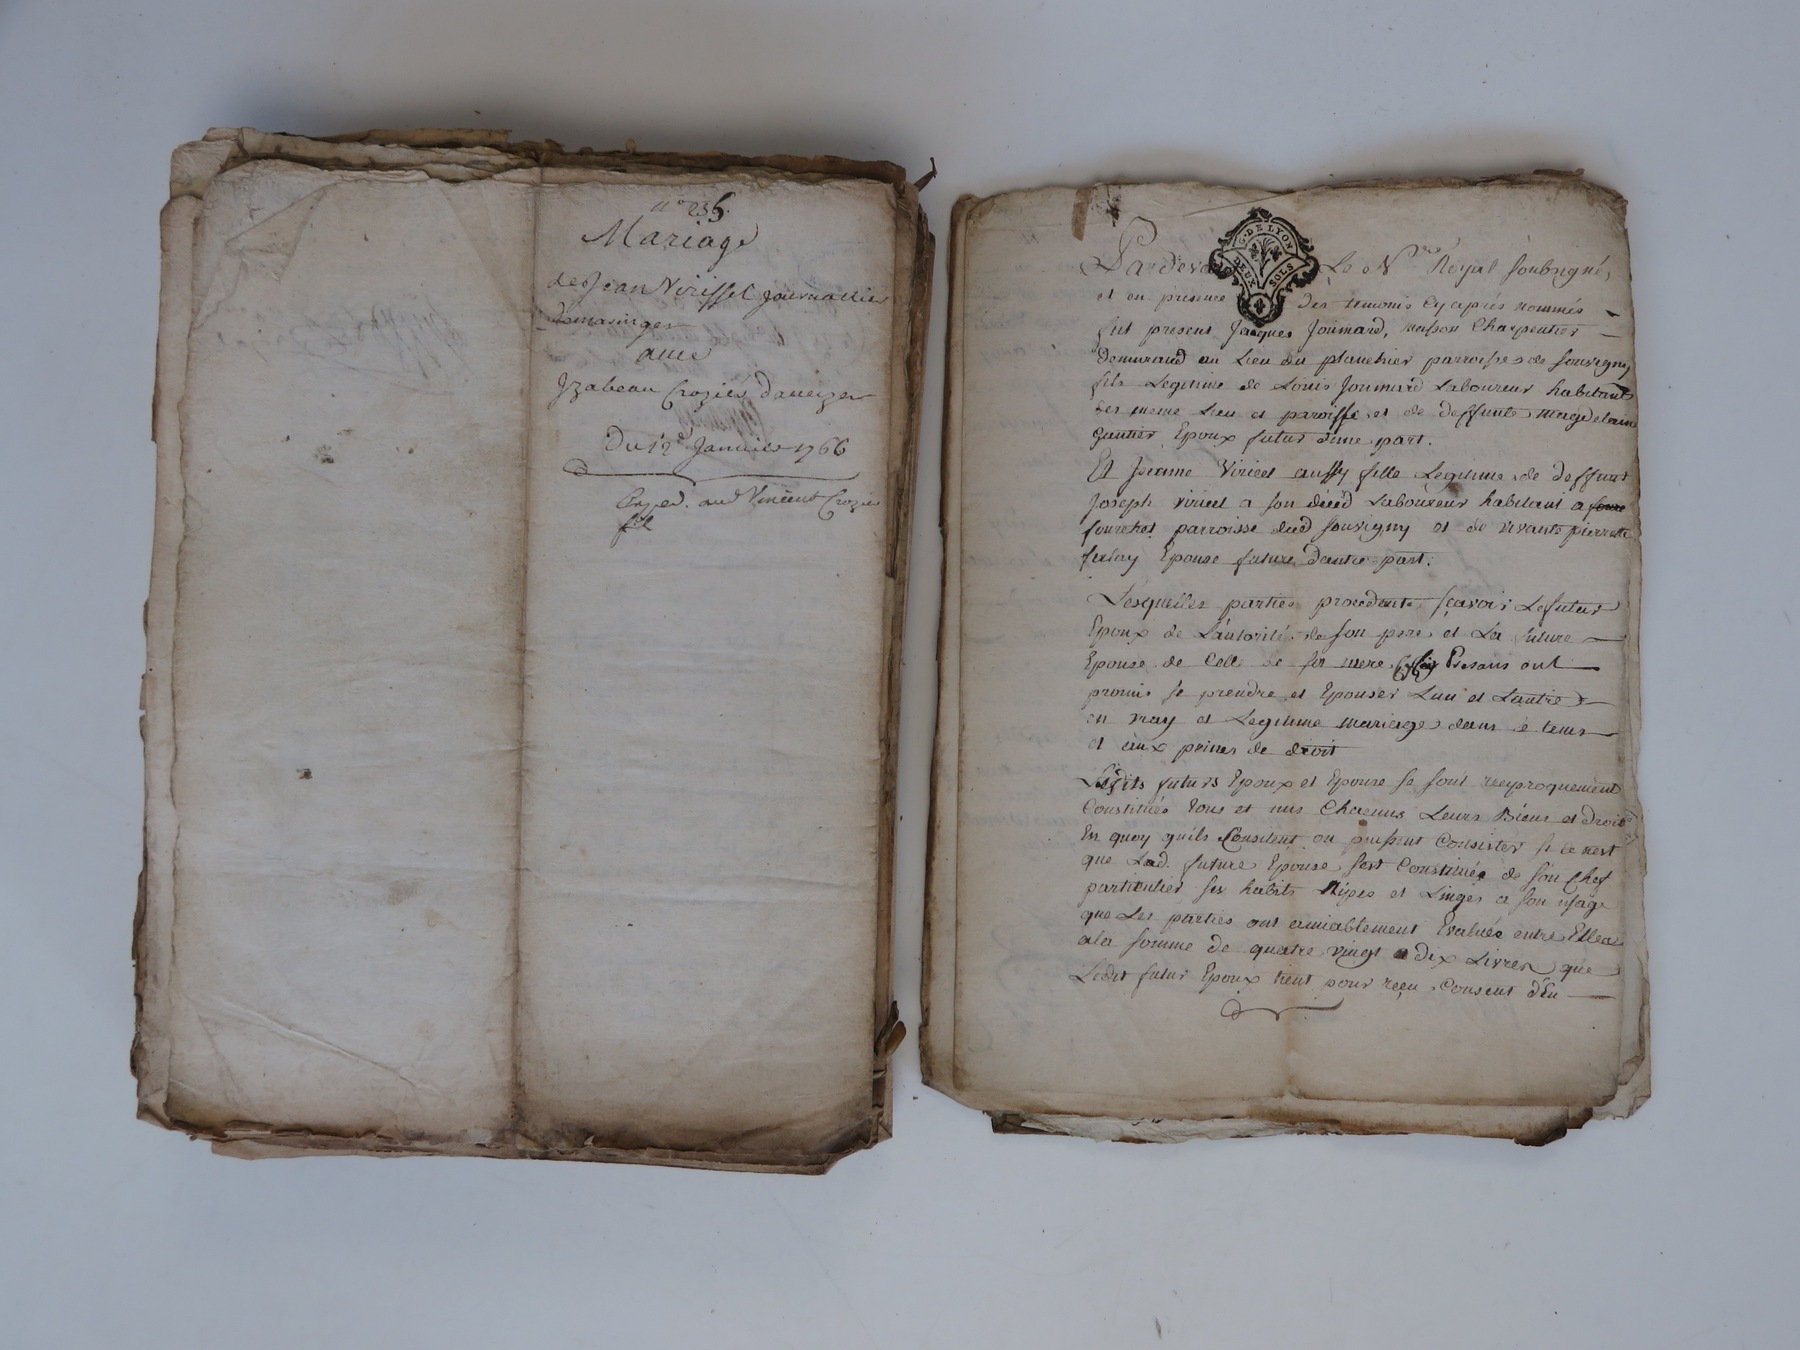 n° 235.
Mariage
de Jean Virissel journallier
avec
Izabeau Croziés
Du 12e Janvier 1766
Exped. aud Vincent Crozier
G. DE LYON
DEUX SOLS
Pardevant Le Nre Royal soubsigné,
et en présence des temoins cy aprés nommés
fut present Jacques Joumard, masson Charpentier
demurand au Lieu du planchier parroisse de souvigny
fils Legitime de Louis Joumard Laboureur habitant
des meme Lieu et paroisse et de deffunte magdelaine
gautier Epoux futur d'une part.
Et Jeanne Viricel aussy fille Legitime de deffunt
Joseph viricel a son décéd Laboureur habitant a
fourchet parroisse dud souvigny et de vivante pierrette
ferlay Epouse future d'autre part.
Lesquelles parties procedants sçavoir Le futur
Epoux de L'autorité de son pere et La future
Epouse de Celle de sa mere Presans ont
promis se prendre et Epouser L'un et L'autre
en vray et Legitime mariage dans le tems
et aux peines de droit
Lesdits futurs Epoux et Epouse se sont reciproquement
Constitués tous et uns Chacuns Leurs Biens et droits
En quoy quils Consistent ou puissent Consister si ce nest
que Lad. future Epouse s'est Constituée de son Chef
particulier ses habits Nipes et Linges a son usage
que Les parties ont amiablement Evaluée entre Elles
a la somme de quatre vingt dix Livres que
Ledit futur Epoux tient pour reçu Consent d'En